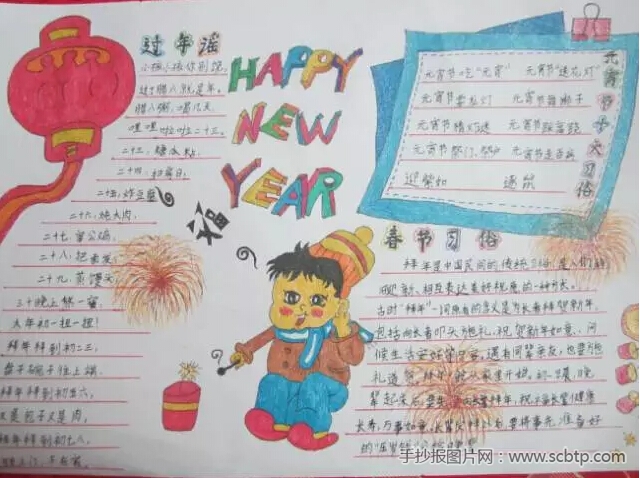 过年谣
小孩小孩你别馋,
过了腊八就是年。
腊八粥,喝几天
哩哩啦啦二十三。
二十三,糖瓜粘,
二十四,扫房日,
二十五,炸豆腐
二十六,炖大肉,
二十七,宰公鸡,
二十八,把面发,
二十九,蒸馒头
三十晚上熬一宵,
大年初一扭一扭!
拜年拜到初二三,
拜年拜到初五六,
又是包子又是肉,
拜年拜到初七八,
HAPPY
NEW
YEAR
福
元宵节十大习俗
元宵节吃"元宵" 元宵节"送花灯"
元宵节耍龙灯 元宵节舞狮子
元宵节猜灯谜 元宵节踩高跷
元宵节祭门、祭户 元宵节走百病
迎紫姑 逐鼠
春节习俗
拜年是中国民间的传统习俗,是人们辞
旧迎新、相互表达美好祝愿的一种方式。
古时"拜年"一词原有的含义是为长者拜贺新年,
包括向长者叩头施礼、祝贺新年如意、问
候生活安好等内容。遇有同辈亲友,也要施
礼道贺。
长寿,万事如意。
手抄报图片网:www.scbtp.com